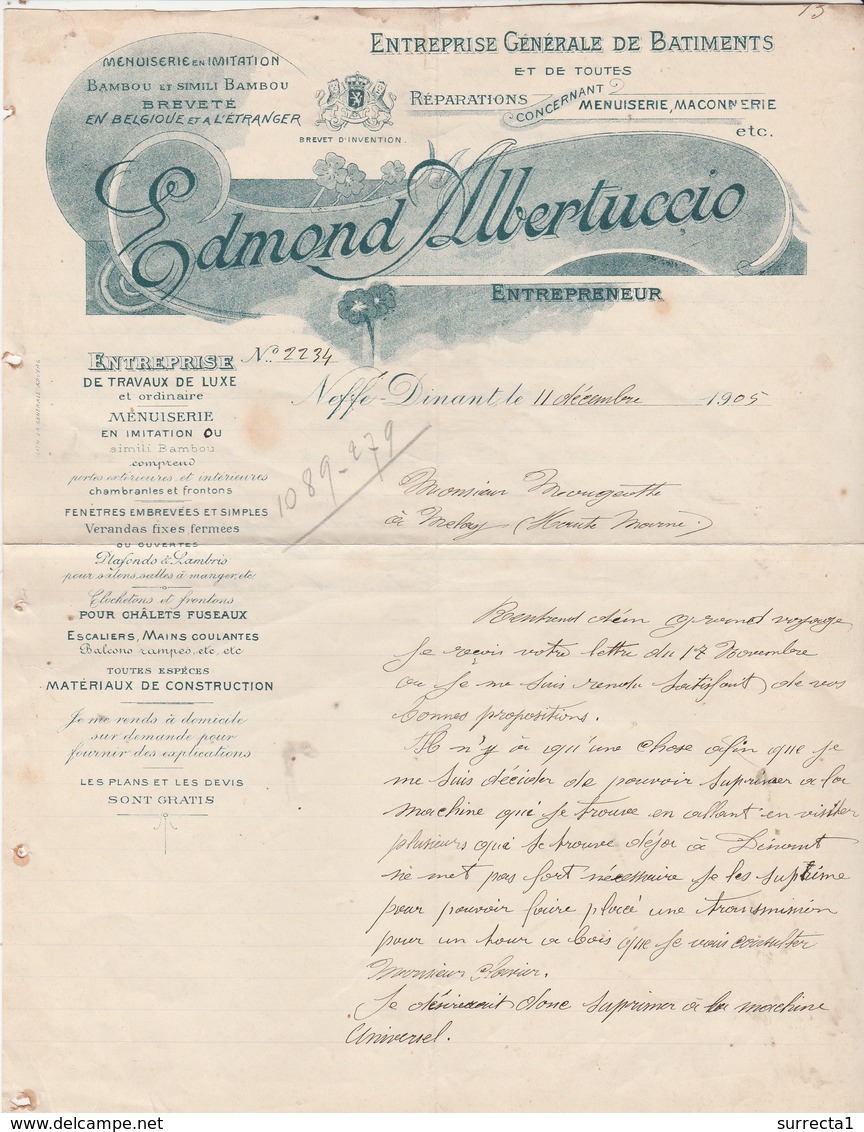 15
MENUISERIE EN IMITATION
BAMBOU ET SIMILI BAMBOU
BREVETÉ
EN BELGIQUE ET A L'ÉTRANGER
BREVET D'INVENTION.
ENTREPRISE GÉNÉRALE DE BATIMENTS
ET DE TOUTES
RÉPARATIONS CONCERNANT MENUISERIE, MACONNERIE
etc.
Edmond Albertuccio
ENTREPRENEUR
N° 2234
Neffe-Dinant, le 11 décembre 1905
1089-279
ENTREPRISE
DE TRAVAUX DE LUXE
et ordinaire
MENUISERIE
EN IMITATION OU
simili Bambou
comprend
portes extérieures et intérieures
chambranles et frontons
FENÊTRES EMBREVÉES ET SIMPLES
Verandas fixes fermees
OU OUVERTES
Plafonds & Lambris
pour salons, salles à manger, etc
Clochetons et frontons
POUR CHÂLETS FUSEAUX
ESCALIERS, MAINS COULANTES
Balcons rampes, etc, etc
TOUTES ESPÈCES
MATÉRIAUX DE CONSTRUCTION
Je me rends à domicile
sur demande pour
fournir des explications
LES PLANS ET LES DEVIS
SONT GRATIS
Monsieur Mougeotte
à Melay (Haute Marne)
Rentrend d'ein grand voyage
Je reçois votre lettre du 17 Novembre
ou Je me suis rendu satisfait de vos
bonnes propositions.
Il n'y à qu'une chose afin que Je
me suis décider de pouvoir suprimer a la
machine qui se trouve en allant en visiter
plusieurs qui se trouve déja à Dinant
ne met pas fort nécessaire Je les suprime
pour pouvoir faire placé une transmission
pour un tour a bois que Je vais consulter
Monsieur
Je désirerait donc suprimer à la machine
Universel.
surrecta1